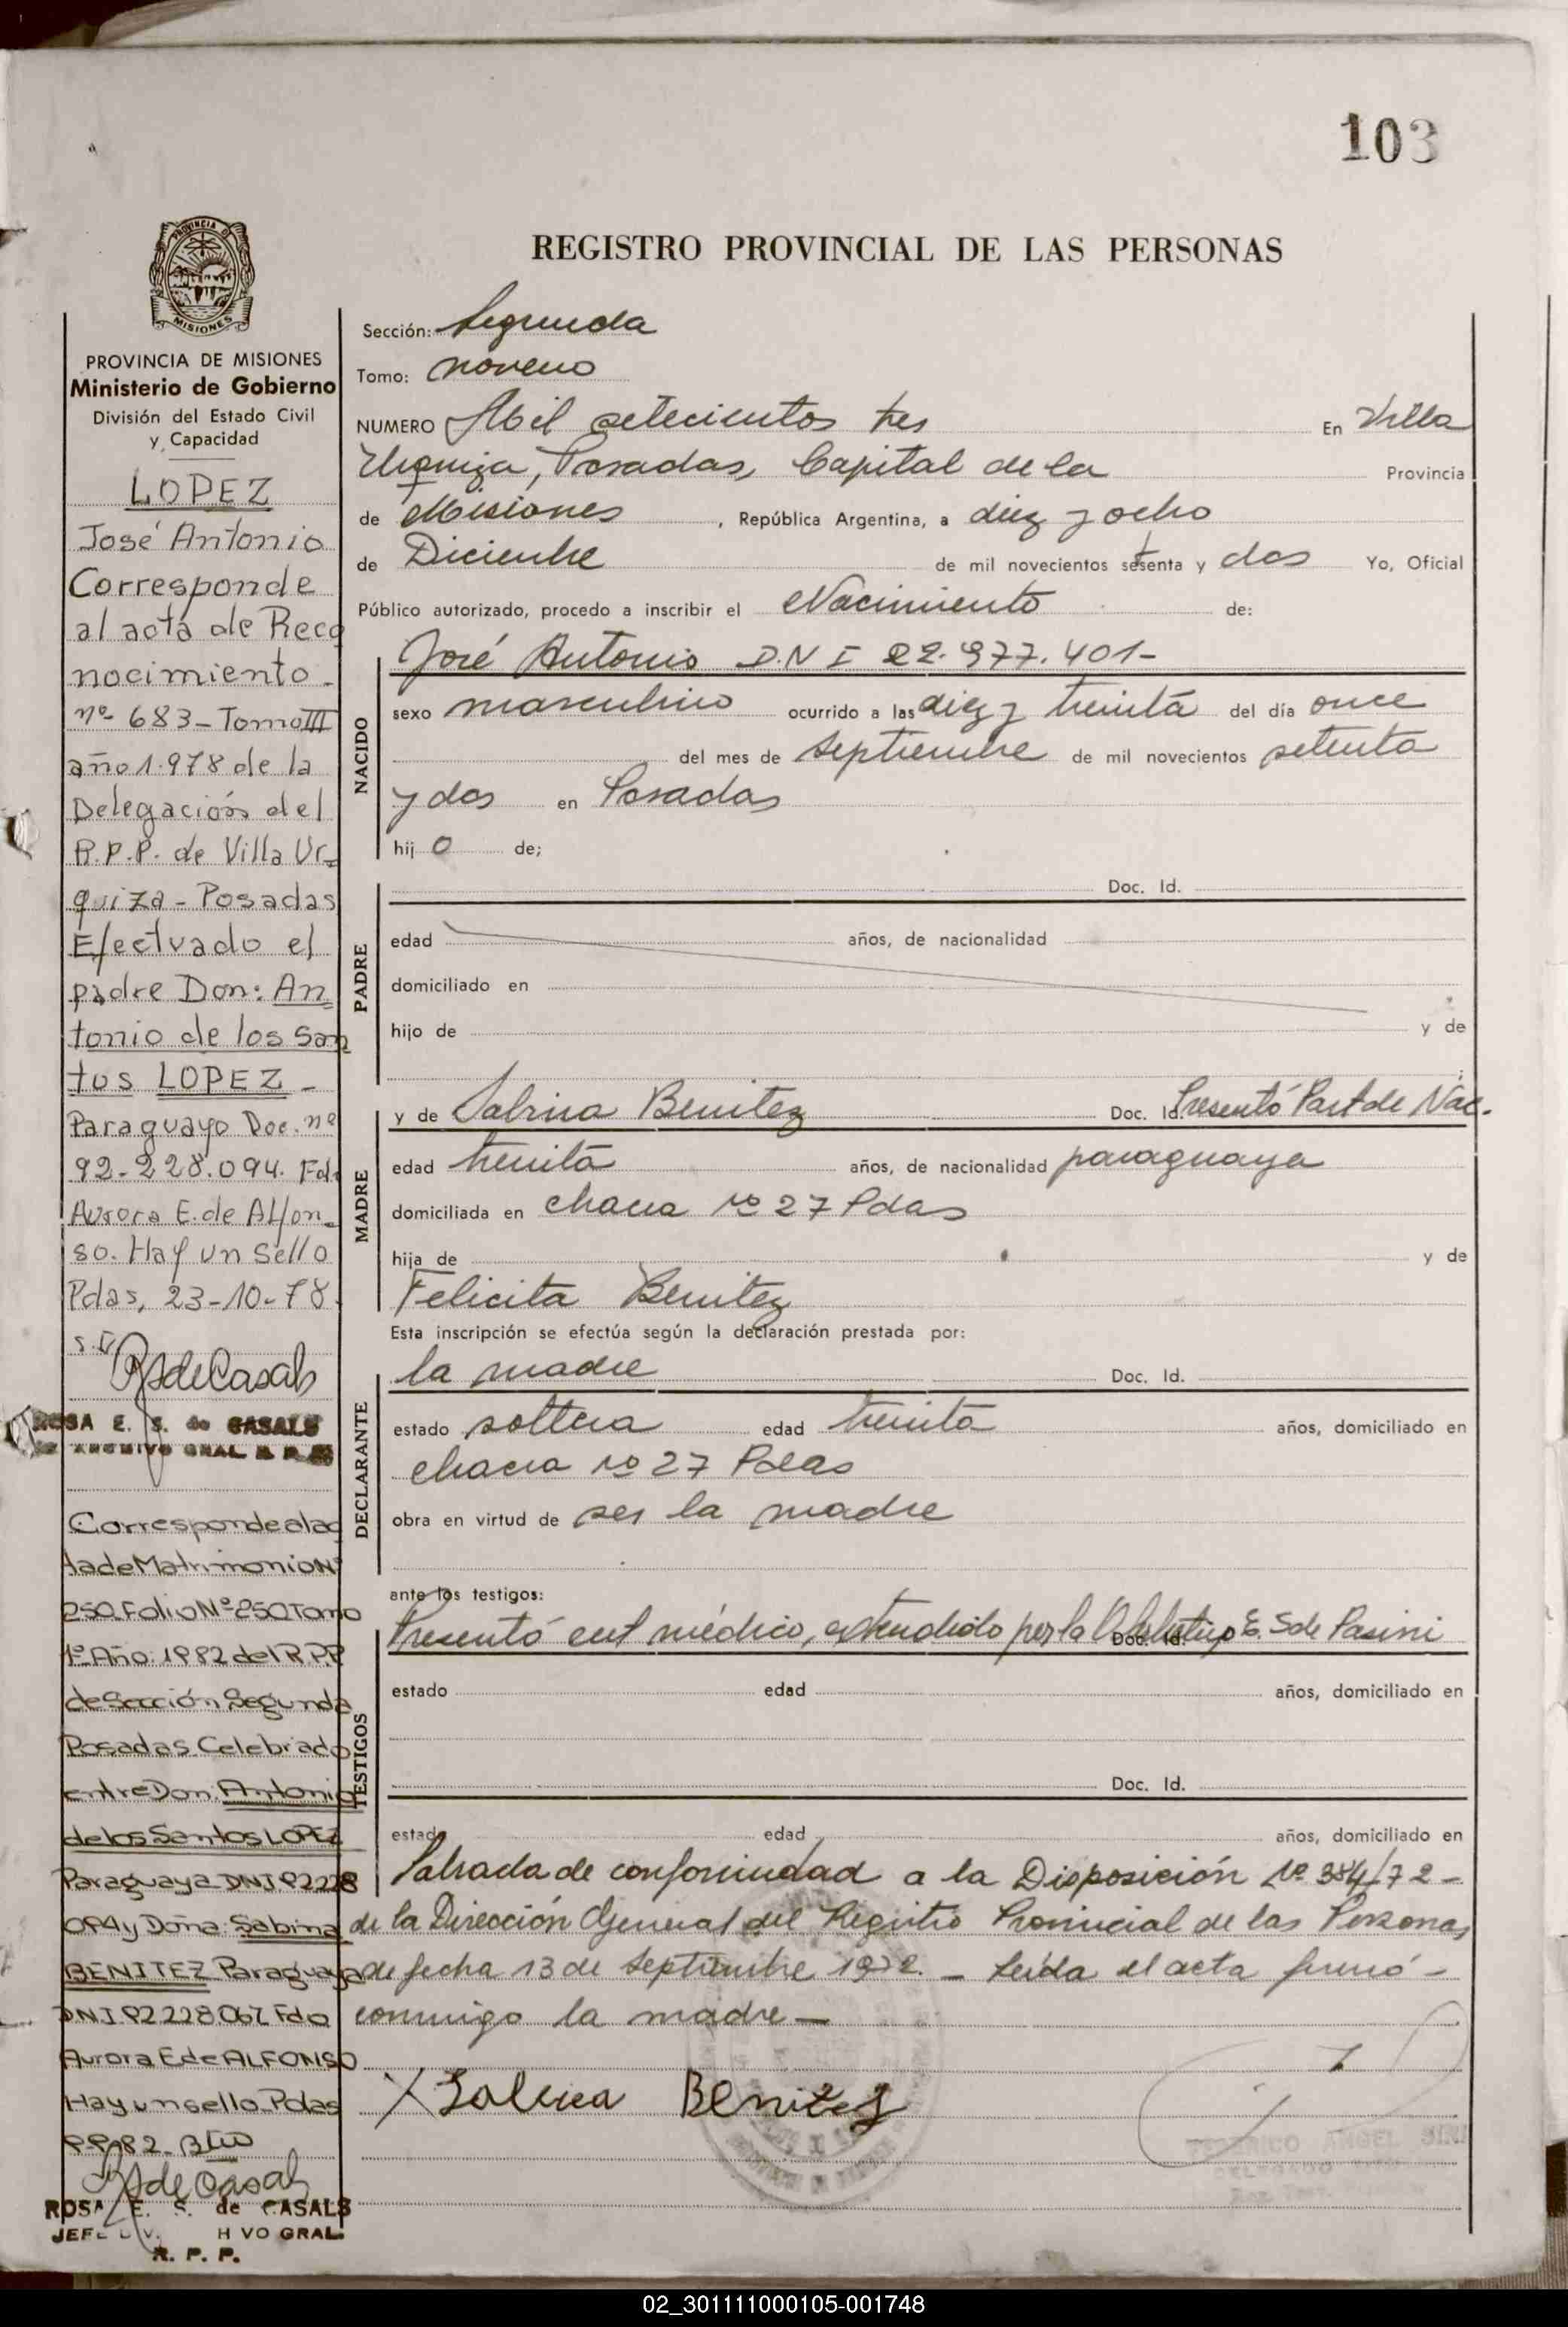 103
PROVINCIA DE
MISIONES
REGISTRO PROVINCIAL DE LAS PERSONAS
PROVINCIA DE MISIONES
Ministerio de Gobierno
División del Estado Civil
y Capacidad
LOPEZ
José Antonio
Corresponde
al acta de Reco
nocimiento -
nº 683 - Tomo III
año 1.978 de la
Delegación del
R.P.P. de Villa Ur=
quiza - Posadas
Efectuado el
padre Don: An
tonio de los San
tos LOPEZ -
Paraguayo Doc. nº
92-228.094. Fdo
Aurora E. de Alfon-
so. Hay un Sello
Pdas, 23-10-78.
RSdeCasals
ROSA E. S. de CASALS
ARCHIVO GRAL R. P.
Corresponde al ac
ta de Matrimonio Nº
250 Folio Nº 250 Tomo
1º Año: 1982 del R.P.P.
de Sección Segunda
Posadas Celebrado
entre Don: Antonio
de los Santos LOPEZ
Paraguaya DNI 92228
094 y Doña: Sabina
BENITEZ Paraguaya
DNI 92228067 Fdo
Aurora E de ALFONSO
Hay un sello Pdas
9-9-82.
RSdeCasals
ROSA E. S. de CASALS
JEFE DIV. HIVO GRAL.
R. P. P.
Sección: Segunda
Tomo: noveno
NUMERO Mil setecientos tres En Villa
Urquiza, Posadas, Capital de la Provincia
de Misiones, República Argentina, a diez y ocho
de Diciembre de mil novecientos setenta y dos Yo, Oficial
Público autorizado, procedo a inscribir el Nacimiento de:
NACIDO
José Antonio D.N I 22.977.401-
sexo masculino ocurrido a las diez y treinta del día once
del mes de septiembre de mil novecientos setenta
y dos en Posadas
hij o de;
PADRE
Doc. Id.
edad años, de nacionalidad
domiciliado en
hijo de y de
MADRE
y de Sabina Benitez Doc. Id. Presentó Part de Nac.
edad treinta años, de nacionalidad paraguaya
domiciliada en chacra nº 27 Pdas
hija de y de
Felicita Benitez
Esta inscripción se efectúa según la declaración prestada por:
DECLARANTE
la madre Doc. Id.
estado soltera edad treinta años, domiciliado en
chacra nº 27 Pdas
obra en virtud de ser la madre
ante los testigos:
TESTIGOS
Presentó cert médico, extendido por la Obstetra E. S de Pasini Doc. Id.
estado edad años, domiciliado en
Doc. Id.
estado edad años, domiciliado en
Labrada de conformidad a la Disposición Nº 384/72-
de la Dirección General del Registro Provincial de las Personas
de fecha 13 de septiembre 1972. - Leída el acta firmó -
conmigo la madre -
X Sabina Benitez
FEDERICO ANGEL
DELEGADO
02_301111000105-001748